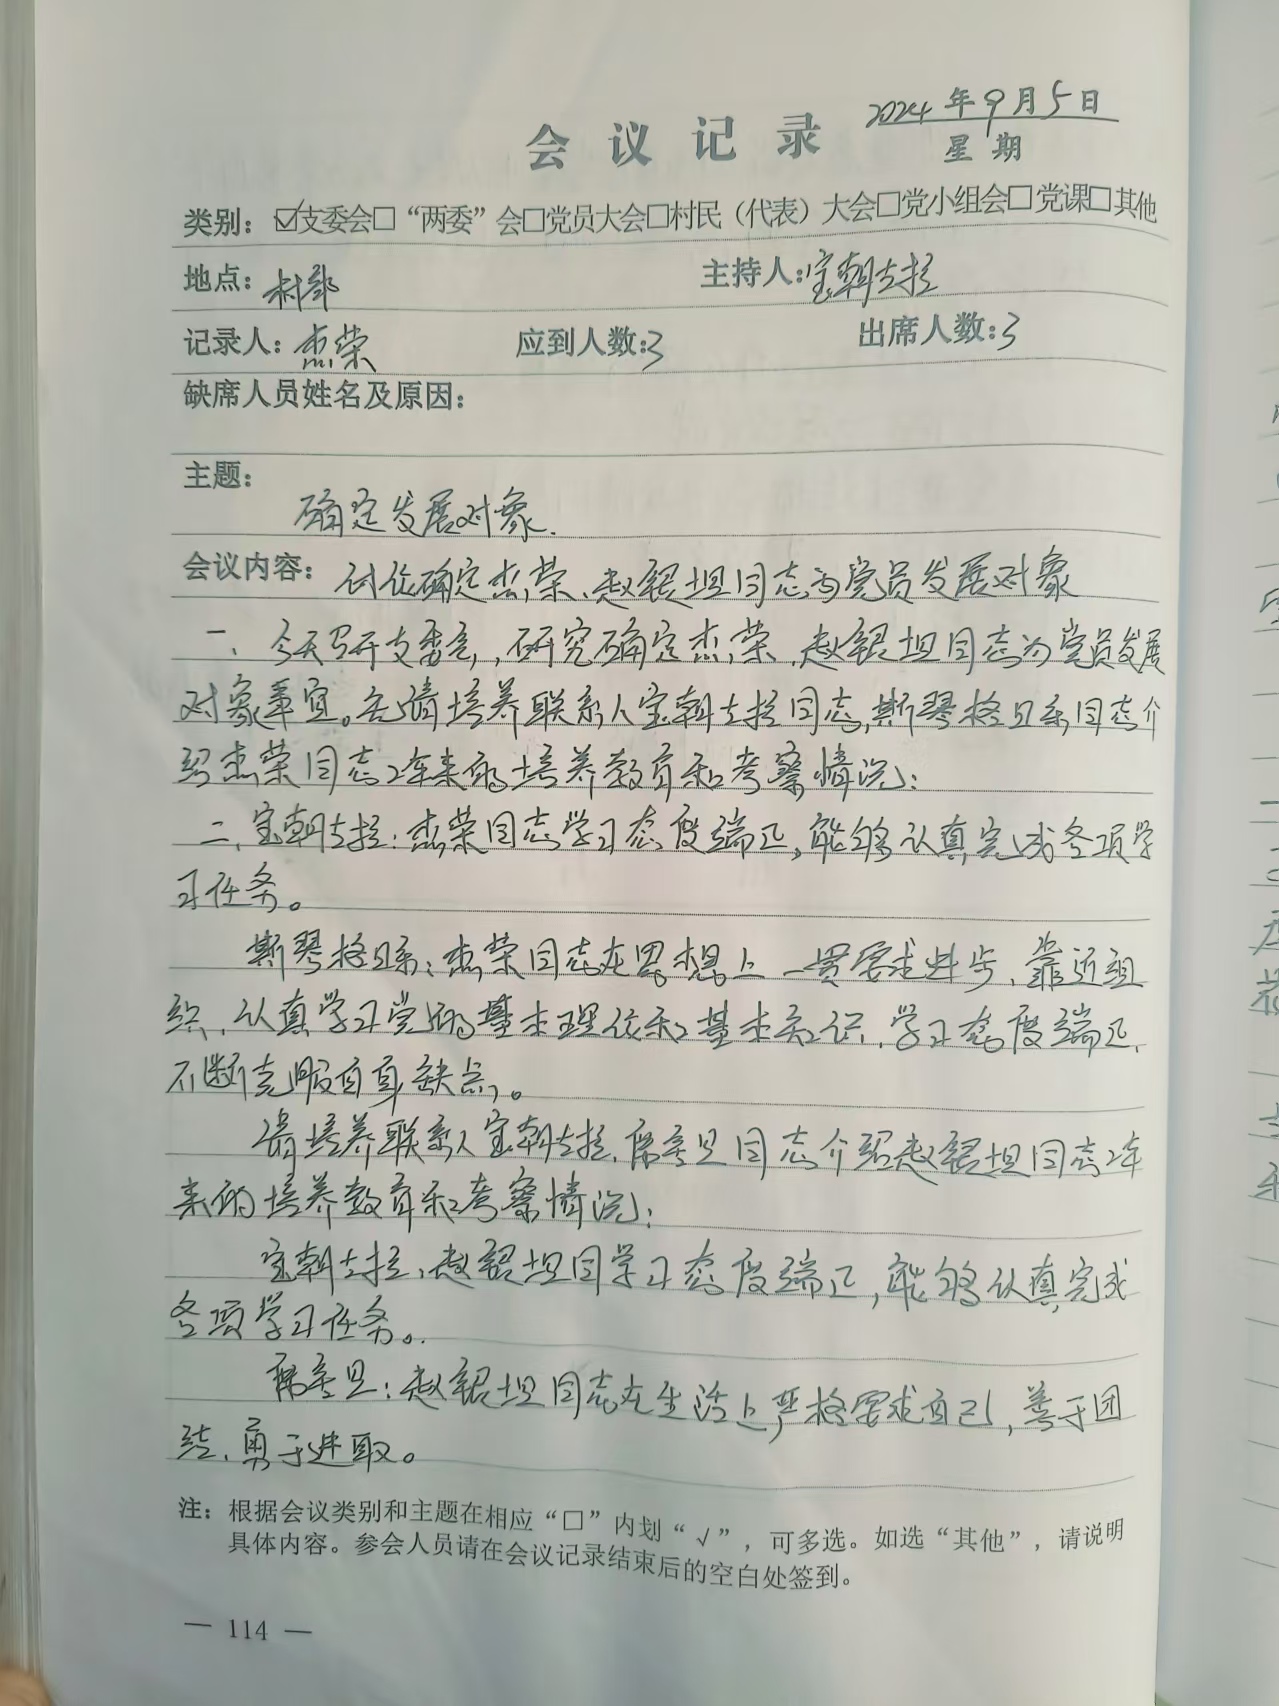 2024年9月5日
会议记录
星期
类别：☑支委会□“两委”会□党员大会□村民（代表）大会□党小组会□党课□其他
地点：村部 主持人：宝朝古拉
记录人：杰荣 应到人数：3 出席人数：3
缺席人员姓名及原因：
主题：
确定发展对象.
会议内容：讨论确定杰荣、赵银坦同志为党员发展对象
一、今天召开支委会,研究确定杰荣,赵银坦同志为党员发展
对象事宜。先请培养联系人宝朝古拉同志,斯琴格日乐同志介
绍杰荣同志2年来的培养教育和考察情况:
二、宝朝古拉:杰荣同志学习态度端正,能够认真完成各项学
习任务。
斯琴格日乐:杰荣同志在思想上一贯要求进步、靠近组
织、认真学习党的基本理论和基本知识,学习态度端正,
不断克服自身缺点。
请培养联系人宝朝古拉,同志介绍赵银坦同志2年
来的培养教育和考察情况:
宝朝古拉,赵银坦同学习态度端正,能够认真完成
各项学习任务。
:赵银坦同志在生活上严格要求自己,善于团
结、勇于进取。
注：根据会议类别和主题在相应“□”内划“√”，可多选。如选“其他”，请说明
具体内容。参会人员请在会议记录结束后的空白处签到。
— 114 —